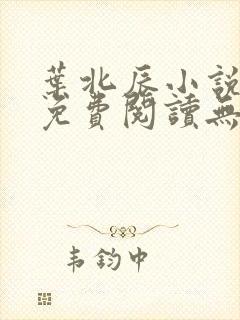 葉北辰小說
免費閱讀無
韦鈞中